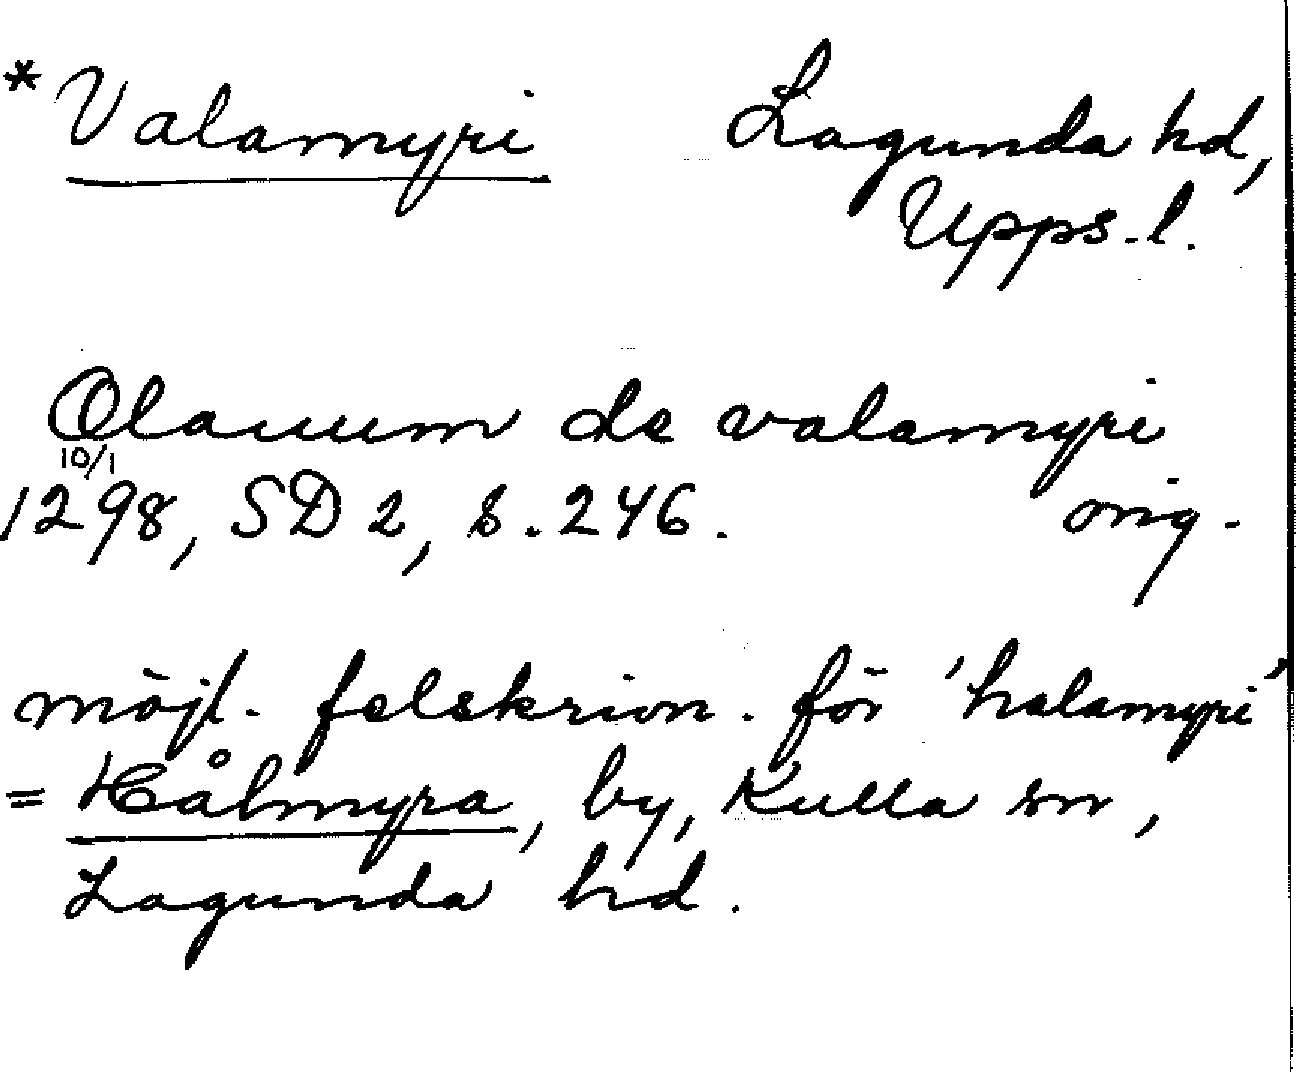 *Valamyri Lagunda hd,
Upps. l.
Olauum de valamyri
10/1
1298, SD 2, s. 246. orig.
möjl. felskrivn. för 'halamyri'
= Hålmyra, by, Kulla sn,
Lagunda hd.